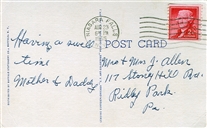 NIAGARA FALLS
POST CARD
Having a swell
time
Mother & Daddy
Mr & Mrs J. Allen
117 Stoney Hill Rd.
Ridley Park
Pa.